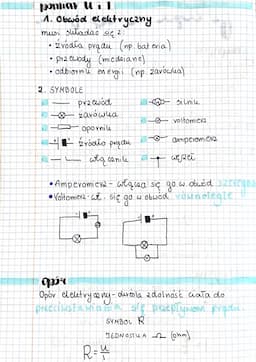 pomiar U i I
1. Obwód elektryczny
musi składać się z:
• źródła prądu (np. bateria)
• przewody (miedziane)
• odbiornik energii (np. żarówka)
2. SYMBOLE
przewód
silnik
żarówka
voltomierz
opornik
amperomierz
źródło prądu
włącznik
węzeł
• Amperomierz - włącza się go w obwód szeregowo
• Voltomierz - wł. się go w obwód równolegle
Opór
Opór elektryczny - zdolność ciała do
przeciwstawiania się przepływom prądu.
SYMBOL R
JEDNOSTKA Ω (ohm)
R = U/I